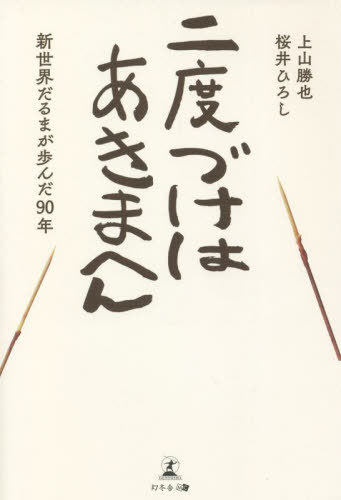 上山勝也
桜井ひろし
二度づけは
あきまへん
新世界だるまが歩んだ90年
GENTOSHA
幻冬舎